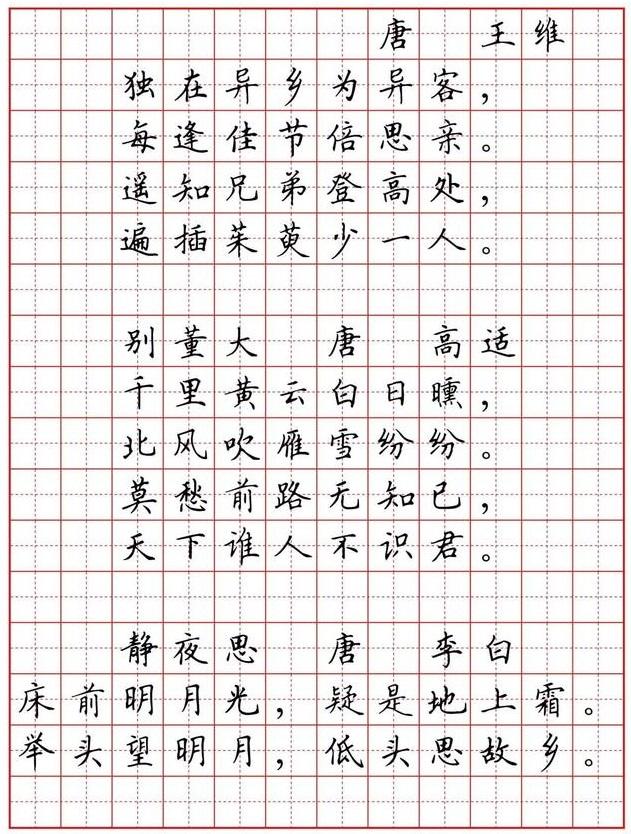 唐 王维
独在异乡为异客，
每逢佳节倍思亲。
遥知兄弟登高处，
遍插茱萸少一人。
别董大 唐 高适
千里黄云白日曛，
北风吹雁雪纷纷。
莫愁前路无知已，
天下谁人不识君。
静夜思 唐 李白
床前明月光，疑是地上霜。
举头望明月，低头思故乡。